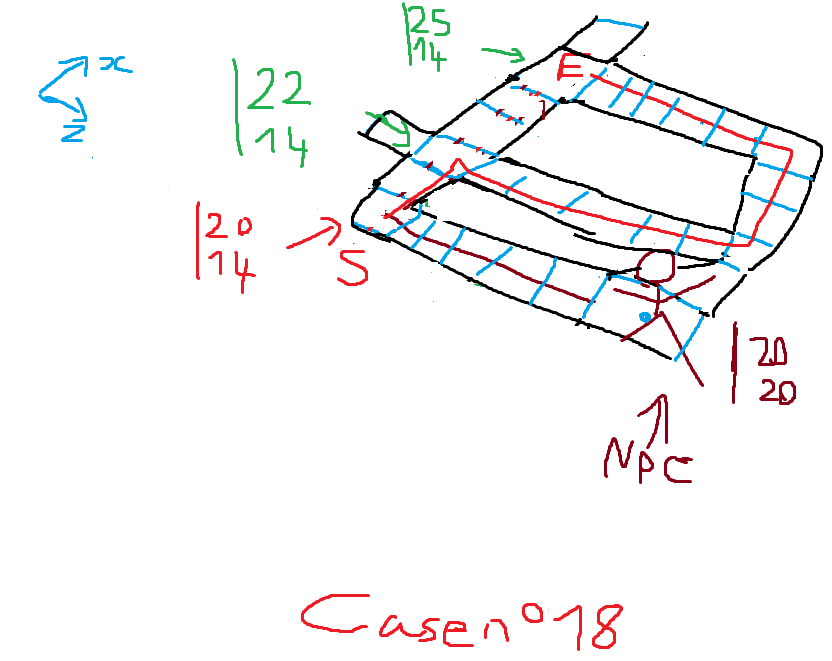 25
14
E
x
z
22
14
20
14
S
20
20
NPC
Case n° 18